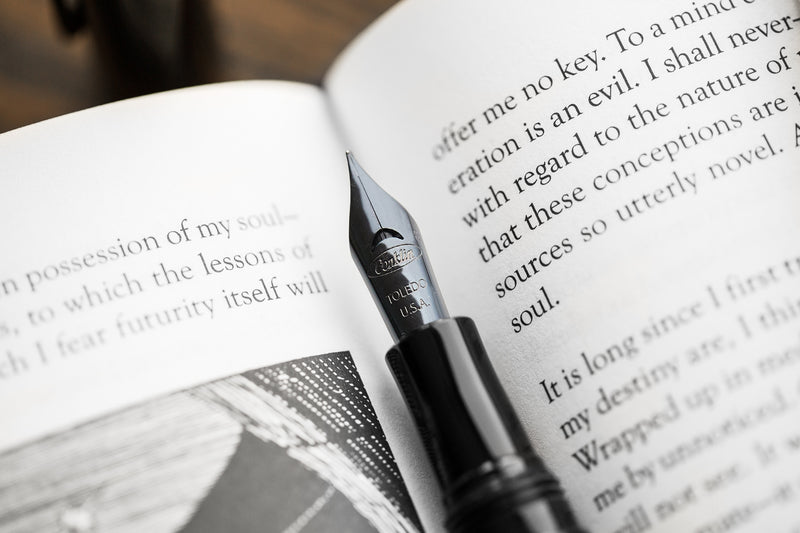 n possession of my soul—
s, to which the lessons of
ch I fear futurity itself will
Conklin
TOLEDO
U.S.A.
offer me no key. To a mind
eration is an evil. I shall never-
with regard to the nature of
that these conceptions are
sources so utterly novel. A
soul.
It is long since I first tr
my destiny are, I thin
Wrapped up in me
me by unnoticed.
will not see. It w